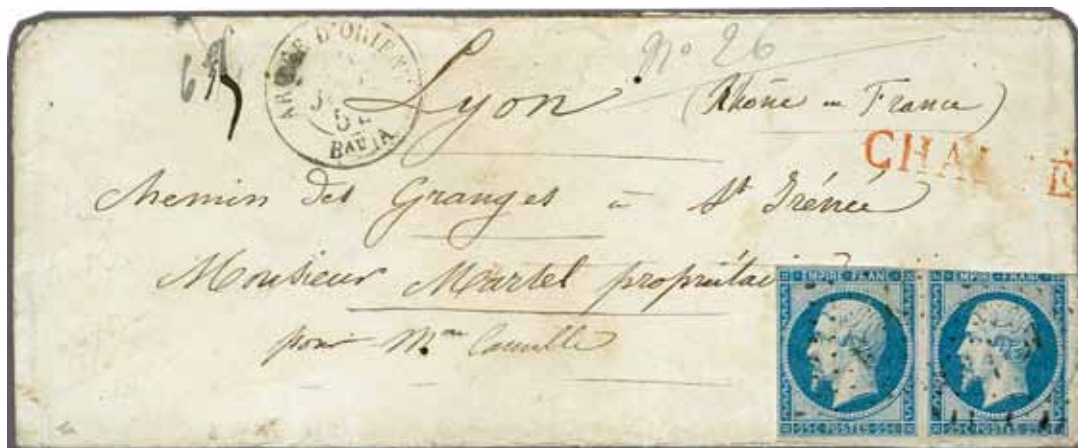 ARMÉE D'ORIENT
BAU IA
N° 26
Lyon (Rhône en France)
CHARGÉ
Chemin des Granges à St Irénée
Monsieur Martel propriétai
pour Mme Camille
EMPIRE FRANC EMPIRE FRANC
25C POSTES 25C 25C POSTES 25C